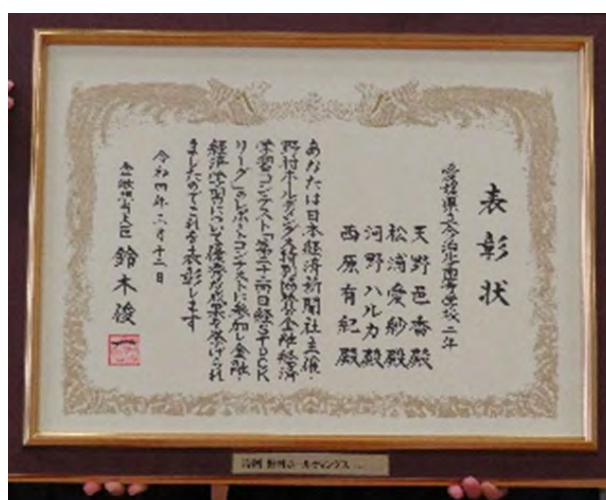 表彰状
愛媛県立今治北高等学校二年
天野邑香殿
松浦愛紗殿
河野ハルカ殿
西原有紀殿
あなたは日本経済新聞社主催・
野村ホールディングス特別協賛の金融・経済
学習コンテスト「第二十二回日経STOCK
リーグ」のレポートコンテストに参加し金融・
経済学習について優秀な成果を挙げられ
ましたのでこれを表彰します
令和四年三月十二日
金融担当大臣 鈴木俊一
特別 野村ホールディングス